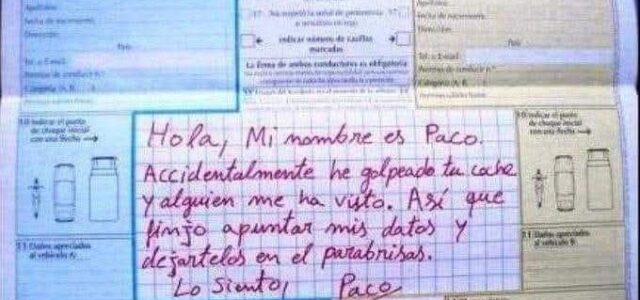 Apellidos:
Fecha de nacimiento:
Dirección:
País:
Tel. o E-mail:
Permiso de conducir n.º
Categoría (A, B, ...)
17 No respetó la señal de preferencia 17
o semáforo en rojo
indicar número de casillas
marcadas
La firma de ambos conductores es obligatoria
País:
Tel. o E-mail:
Permiso de conducir n.º
Categoría (A, B, ...)
10 Indicar el punto
de choque inicial
con una flecha
Hola, Mi nombre es Paco.
Accidentalmente he golpeado tu coche
y alguien me ha visto. Así que
finjo apuntar mis datos y
dejartelos en el parabrisas.
Lo siento, Paco
10 Indicar el punto
de choque inicial
con una flecha
11 Daños apreciados
al vehículo A:
11 Daños apreciados
al vehículo B: